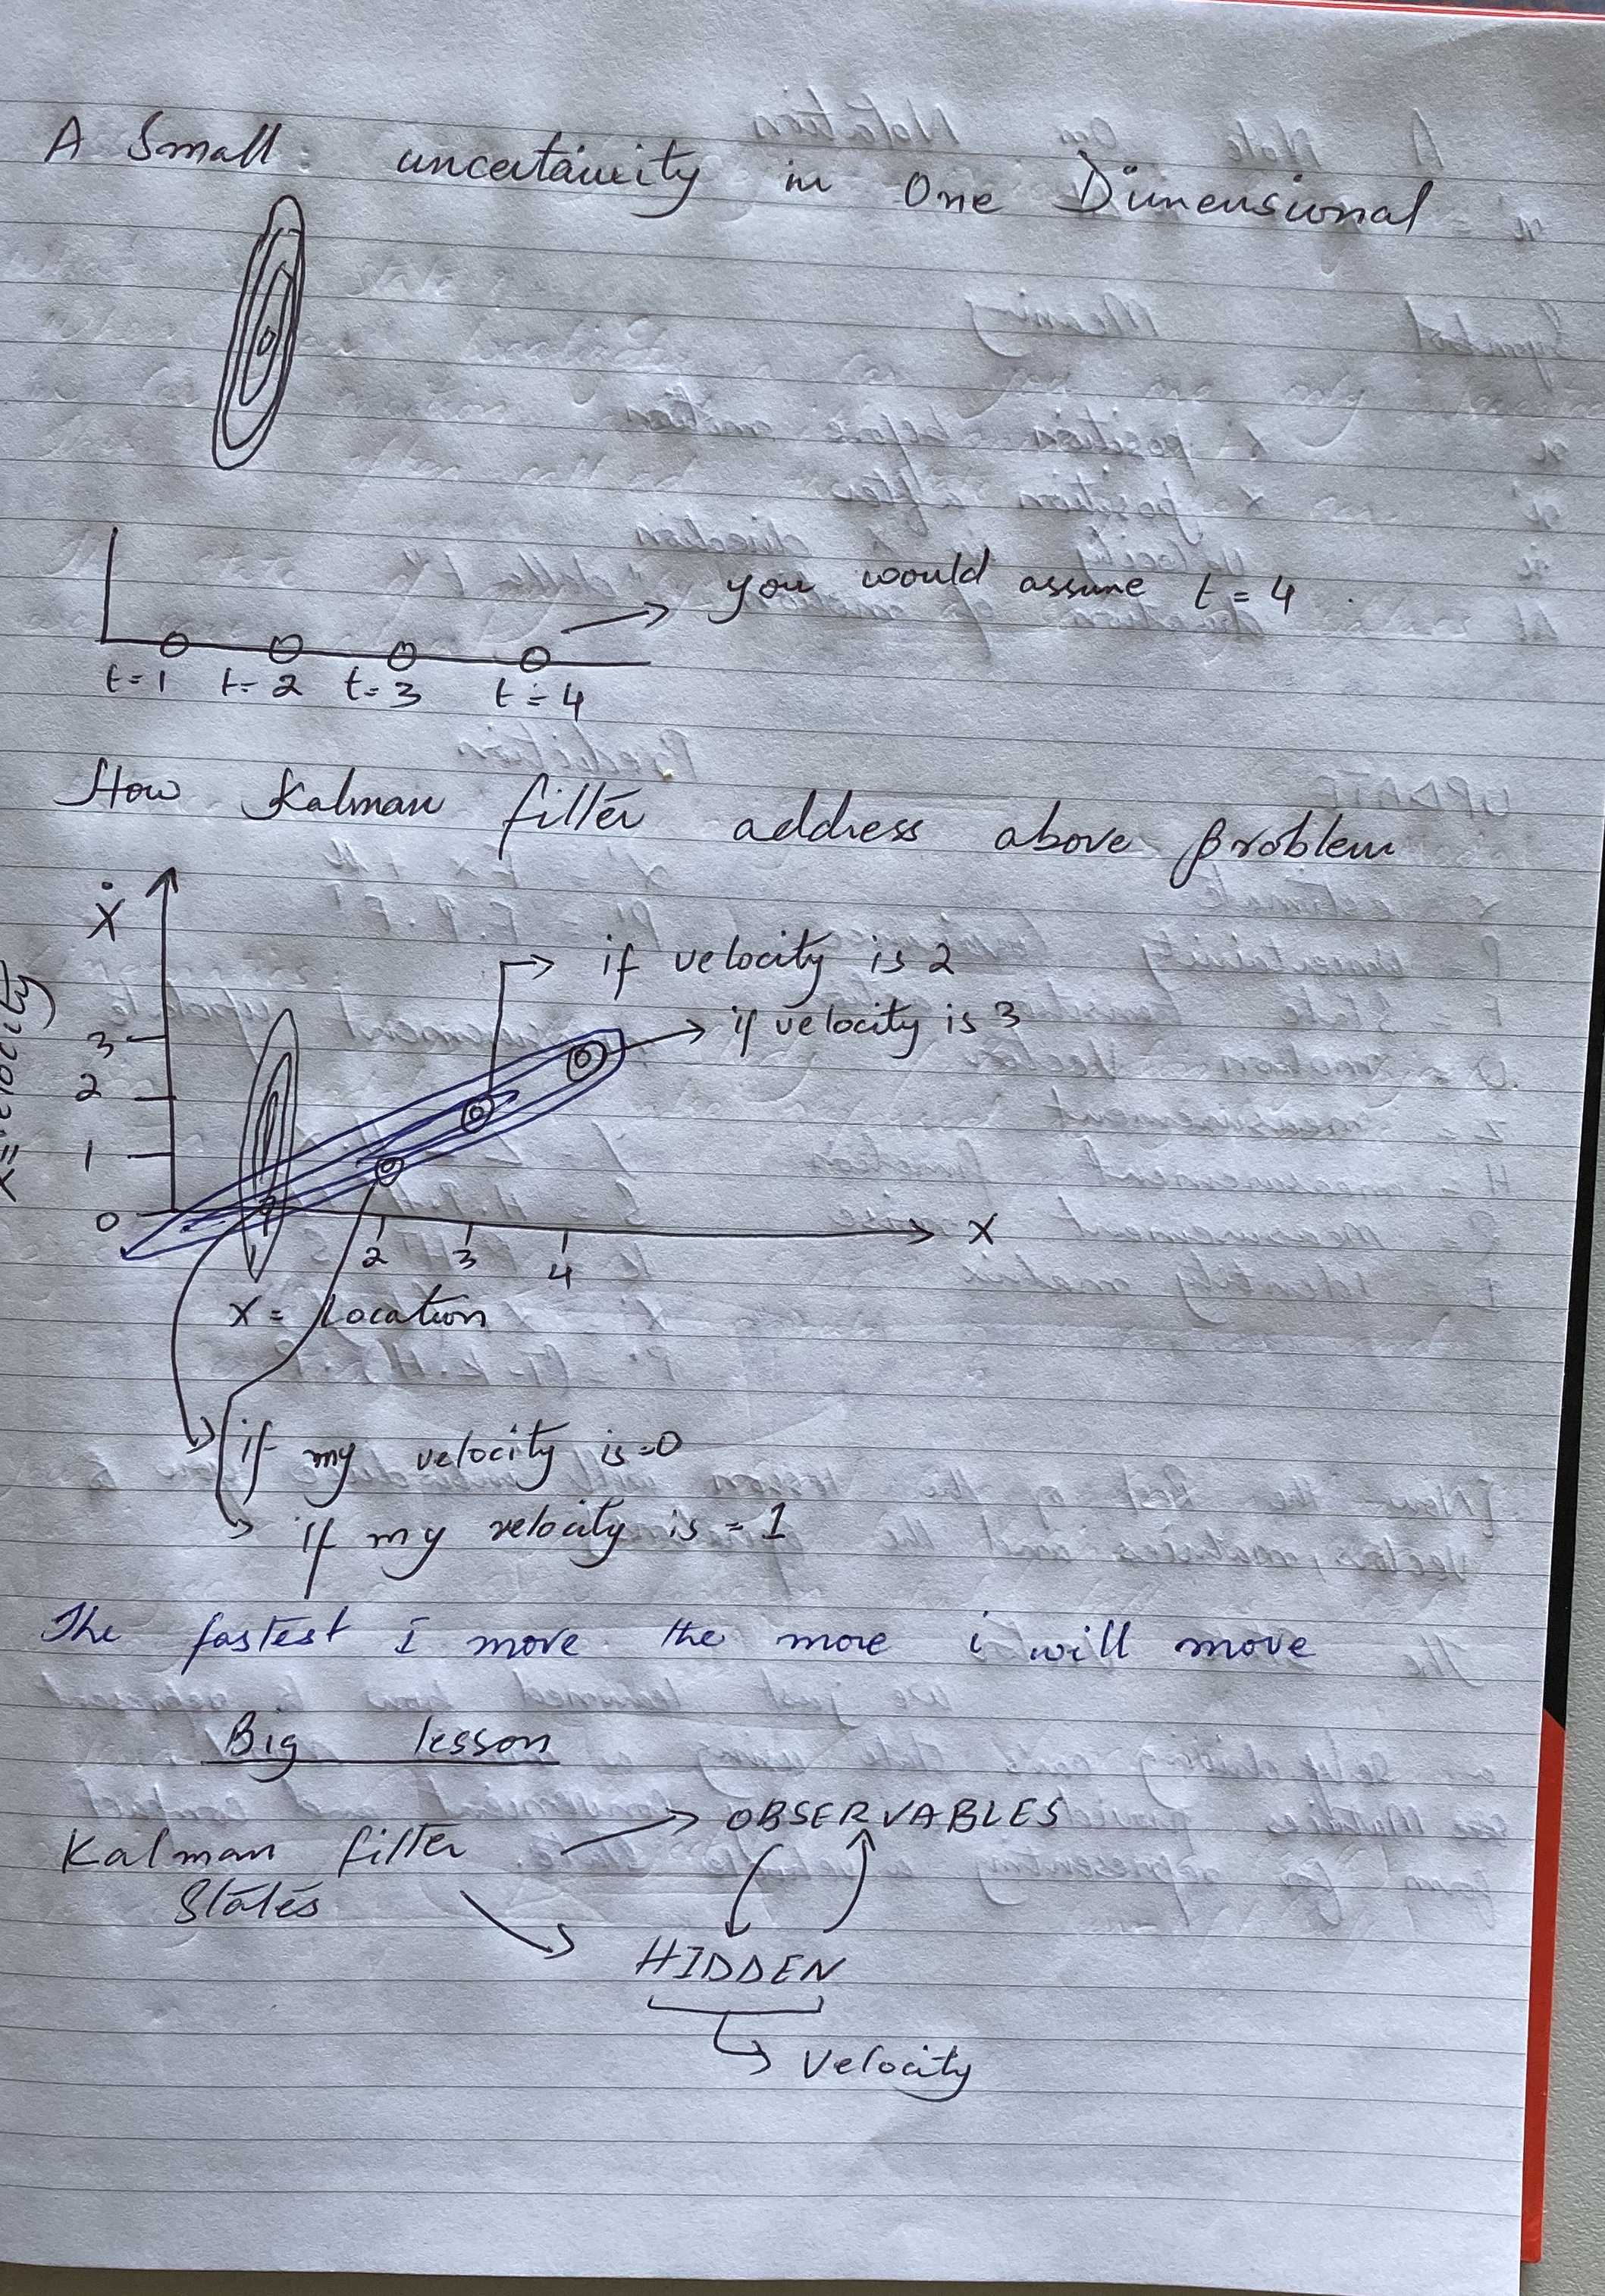 A Small uncertainity in One Dimensional
you would assume t = 4
t=1 t=2 t=3 t=4
How Kalman filter address above problem
Ẋ
if velocity is 2
if velocity is 3
3
2
1
0
2 3 4
X
velocity
X = Location
if my velocity is=0
if my velocity is = 1
The fastest I move the more i will move
Big lesson
OBSERVABLES
Kalman filter
States
HIDDEN
Velocity